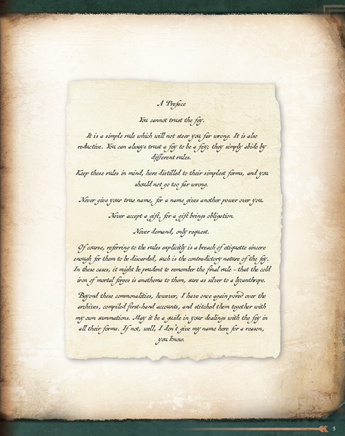 A Preface
You cannot trust the fey.
It is a simple rule which will not steer you far wrong. It is also
reductive. You can always trust a fey to be a fey; they simply abide by
different rules.
Keep these rules in mind, here distilled to their simplest forms, and you
should not go too far wrong.
Never give your true name, for a name gives another power over you.
Never accept a gift, for a gift brings obligation.
Never demand, only request.
Of course, referring to the rules explicitly is a breach of etiquette sincere
enough for them to be discarded, such is the contradictory nature of the fey.
In these cases, it might be prudent to remember the final rule - that the cold
iron of mortal forges is anathema to them, sure as silver to a lycanthrope.
Beyond these commonalities, however, I have once again pored over the
archives, compiled first-hand accounts, and stitched them together with
my own summations. May it be a guide in your dealings with the fey in
all their forms. If not, well, I don't give my name here for a reason,
you know.